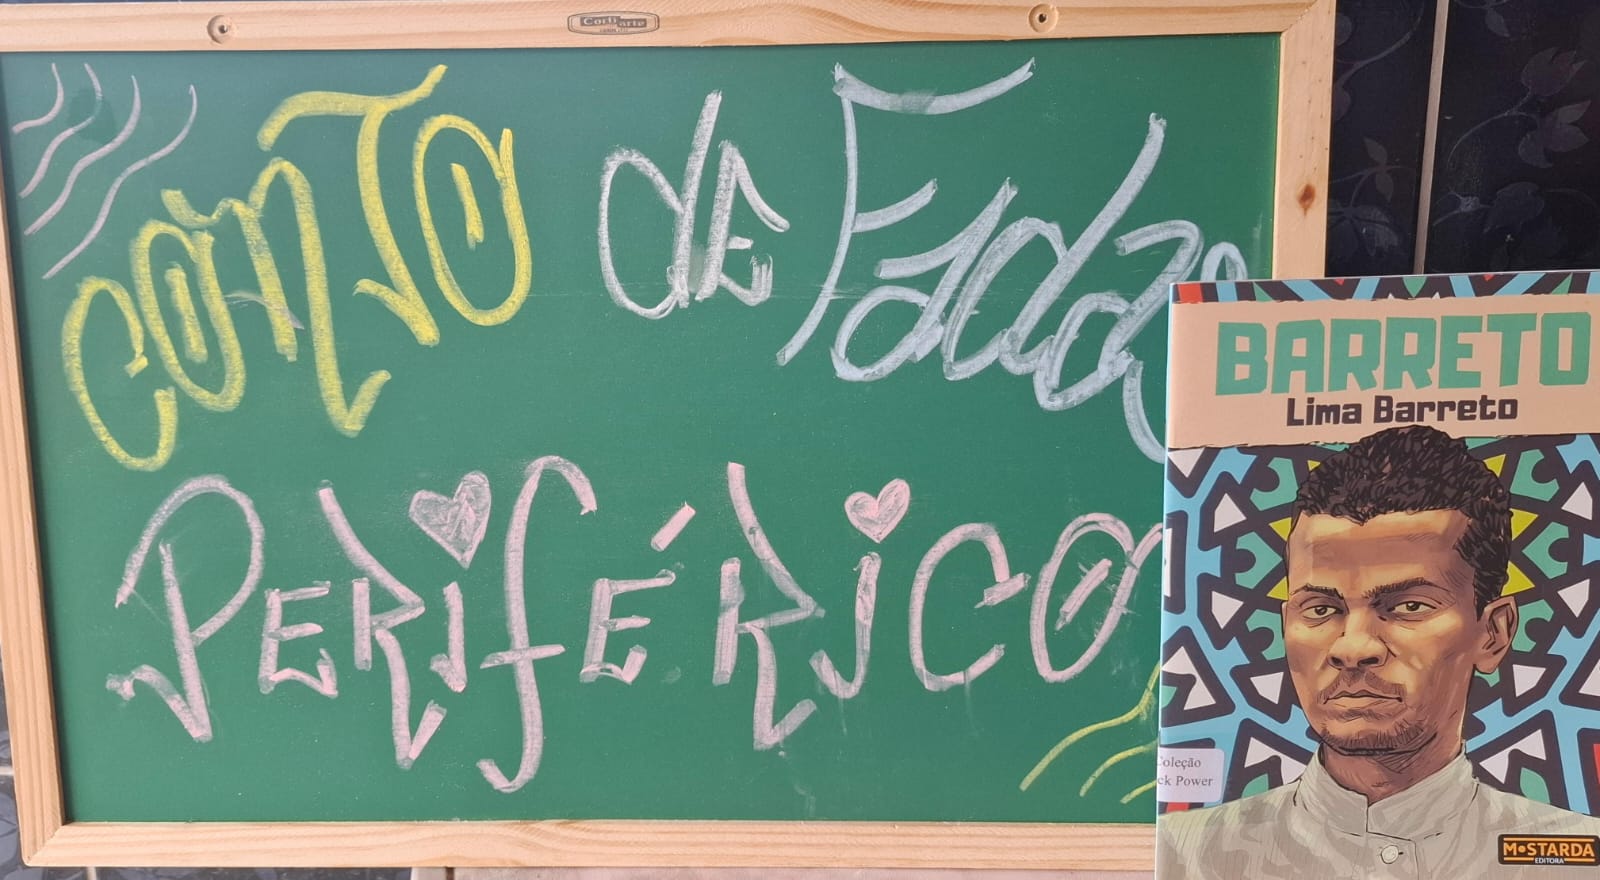 Corti arte
CONTO de Fadas
PERIFÉRICO
BARRETO
Lima Barreto
Coleção
ck Power
MOSTARDA
EDITORA